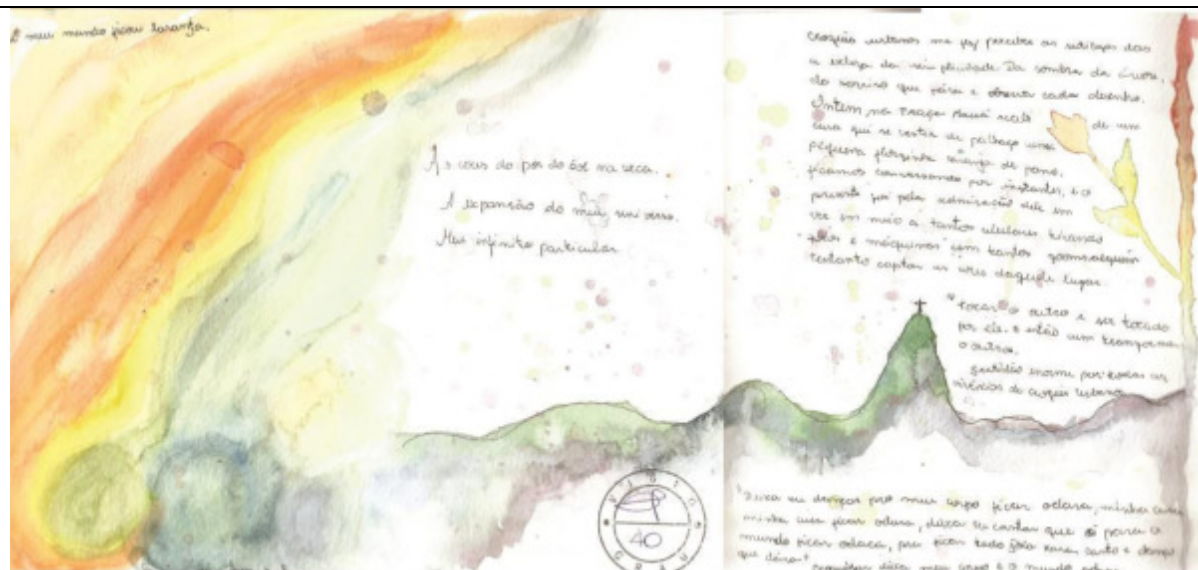 meu mundo ficou laranja.
As cores do pôr do sol na seca.
A expansão do meu universo.
Meu infinito particular
croquis urbanos me fez perceber as sutilezas das
a beleza da simplicidade. Da sombra da árvore,
do sorriso que para e observa cada desenho.
Ontem, na Praça Mauá recebi de um
cara que se vestia de palhaço uma
pequena florzinha laranja de pano.
ficamos conversando por instantes, e o
presente foi pela admiração dele em
ver em meio a tantos celulares tirando
fotos e máquinas com tantos zooms alguém
tentando captar as cores daquele lugar.
"tocar o outro e ser tocado
por ele. e então um transforma
o outro.
gratidão enorme por todas as
vivências do croquis urbanos
VISTO
40
GRAU
"Deixa eu dançar pro meu corpo ficar odara, minha cara
minha cuca ficar odara, deixa eu cantar que é para o
mundo ficar odara, pra ficar tudo joia rara, canto e danço
que dará"
meu corpo e o mundo odara